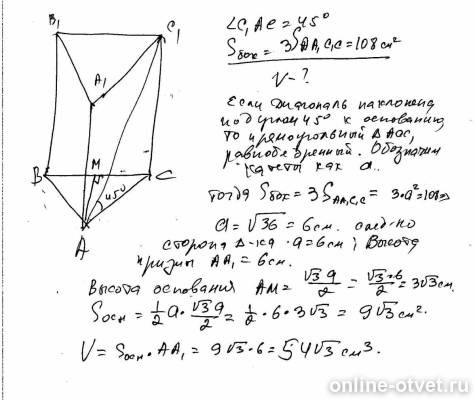 B₁
C₁
A₁
B
M
C
45°
A
∠C₁AC = 45°
Sбок = 3SAA₁C₁C = 108 см²
V - ?
Если диагональ наклонена
под углом 45° к основанию
то прямоугольный Δ ACC₁
равнобедренный. Обозначим
катеты как a.
тогда Sбок = 3SAA₁C₁C = 3·a² = 108
a = √36 = 6см. след-но
сторона Δ-ка · a = 6см; Высота
призмы AA₁ = 6см.
Высота основания AM = √3a/2 = √3·6/2 = 3√3см
Sосн = 1/2 a · √3a/2 = 1/2 · 6 · 3√3 = 9√3 см².
V = Sосн · AA₁ = 9√3 · 6 = 54√3 см³.
online-otvet.ru